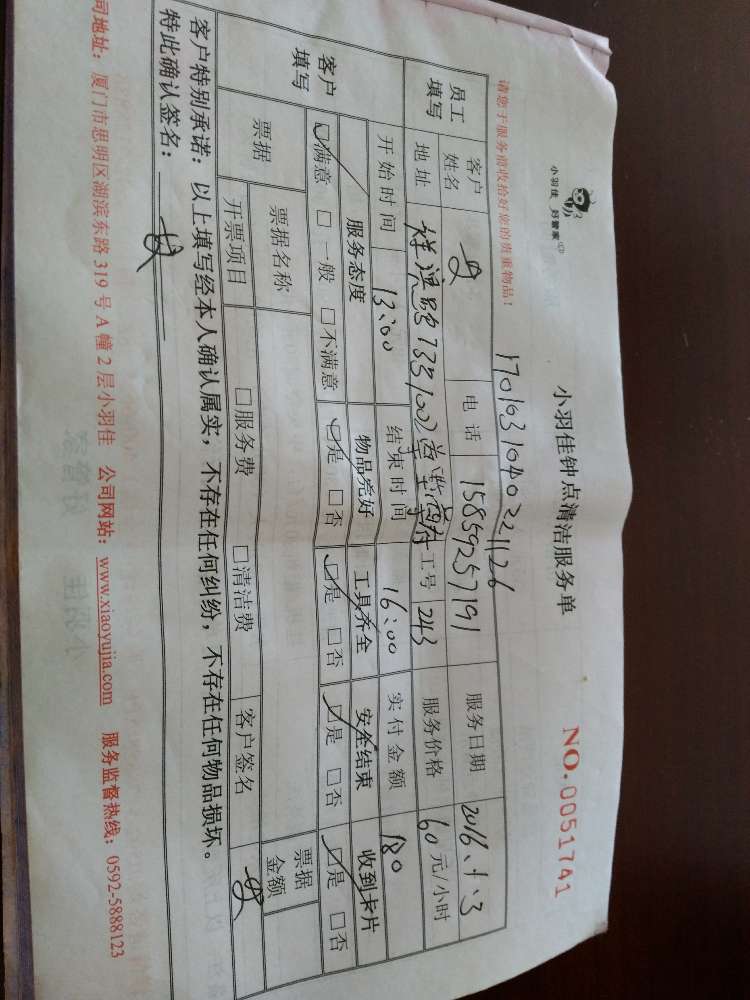 小羽佳 好管家
小羽佳钟点清洁服务单
NO.0051741
请您于服务前收拾好您的贵重物品！
170103104022 1126
员工填写
客户姓名 电话 15859257191 服务日期 2016.1.3
地址 祥滨路735 1002 工号 243 服务价格 60元/小时
开始时间 13:00 结束时间 16:00 实付金额 180
客户填写
服务态度 物品完好 工具齐全 安全结束 收到卡片
☑满意 □一般 □不满意 ☑是 □否 ☑是 □否 ☑是 □否 ☑是 □否
票据 票据名称 票据金额
开票项目 □服务费 □清洁费 客户签名
客户特别承诺：以上填写经本人确认属实，不存在任何纠纷，不存在任何物品损坏。
特此确认签名：
司地址：厦门市思明区湖滨东路319号A幢2层小羽佳 公司网站：www.xiaoyujia.com 服务监督热线：0592-5888123